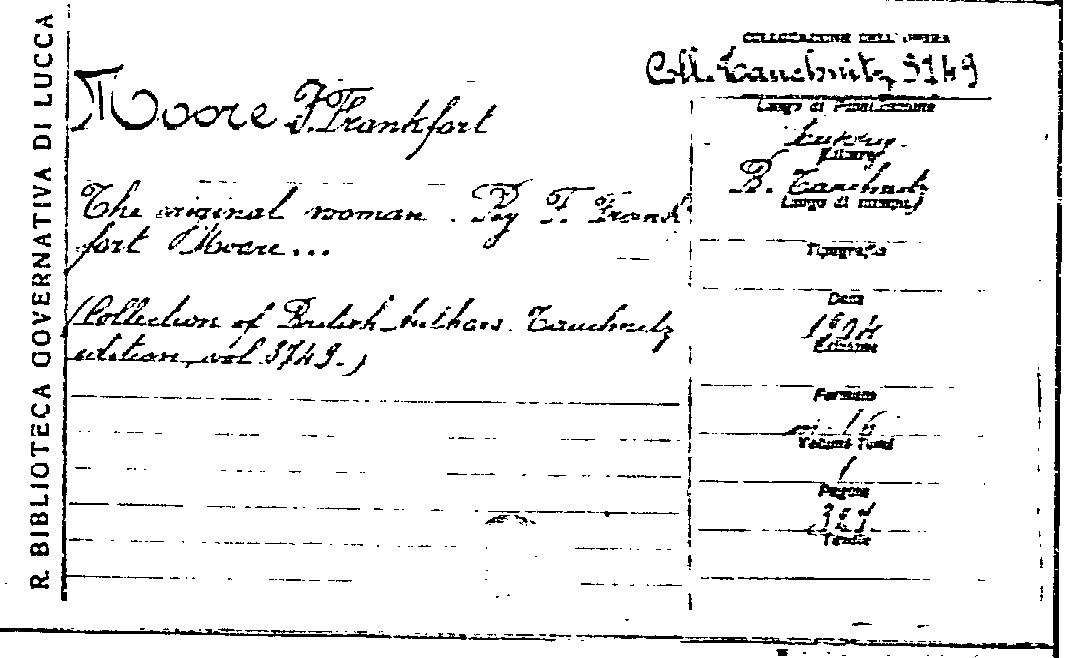 R. BIBLIOTECA GOVERNATIVA DI LUCCA
COLLOCAZIONE DELL'OPERA
Coll. Tauchnitz, 3749
Moore F. Frankfort
The original woman. By F. Frank
fort Moore...
(Collection of British Authors. Tauchnitz
edition, vol 3749.)
Luogo di Pubblicazione
Editore
B. Tauchnitz
Luogo di stampa
Tipografia
Data
1904
Edizione
Formato
in-16
Volumi Tomi
1
Pagine
Tavole